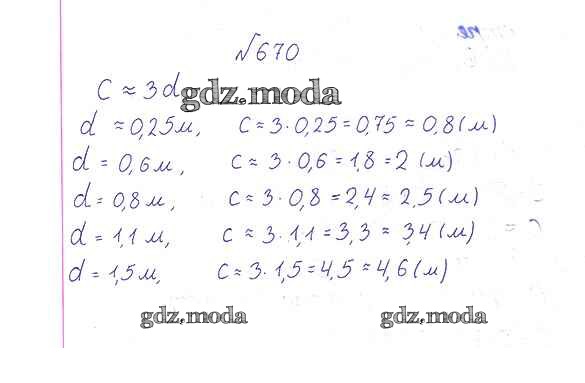 №670
C ≈ 3d
gdz.moda
d ≈ 0,25 м, C ≈ 3 · 0,25 = 0,75 ≈ 0,8 (м)
d = 0,6 м, C ≈ 3 · 0,6 = 1,8 = 2 (м)
d = 0,8 м, C ≈ 3 · 0,8 = 2,4 ≈ 2,5 (м)
d = 1,1 м, C ≈ 3 · 1,1 = 3,3 ≈ 3,4 (м)
d = 1,5 м, C ≈ 3 · 1,5 = 4,5 ≈ 4,6 (м)
gdz.moda gdz.moda